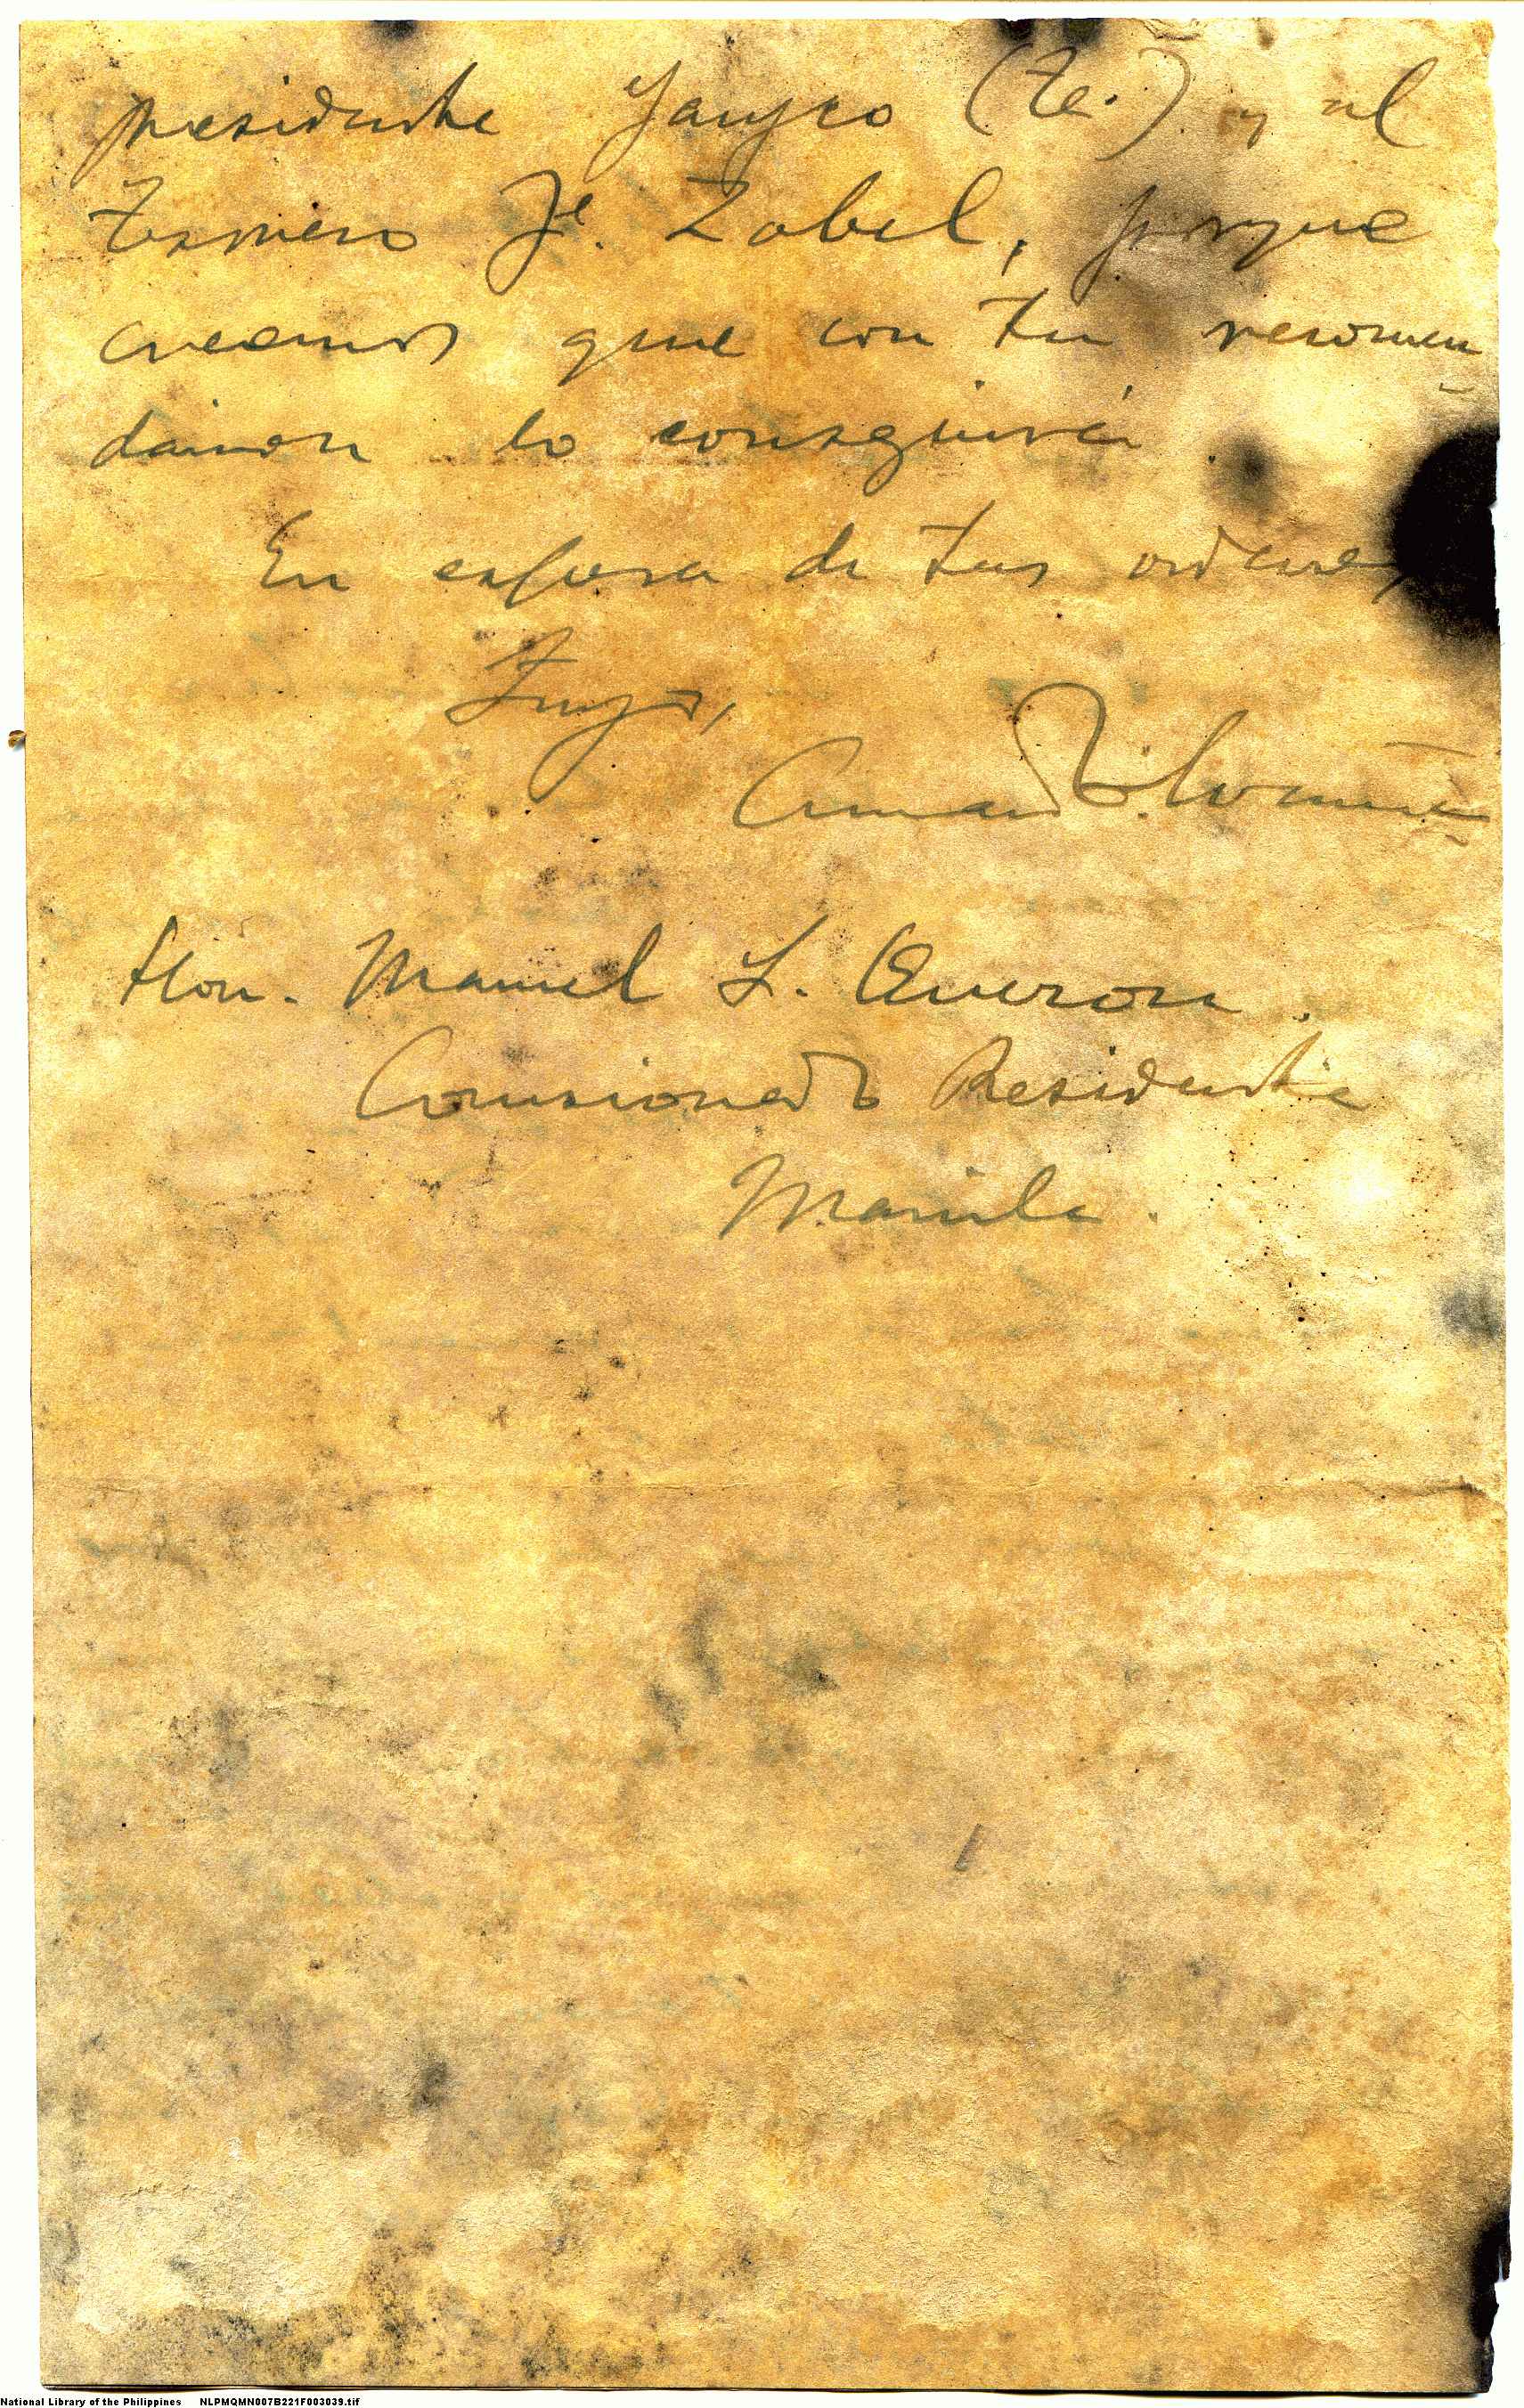 presidente Jauyco (Te.) y al
Tesorero Je. Zobel, porque
creemos que con tu recomen
dacion lo conseguirá.
En espera de tus ordenes,
Tuyo,
Hon. Manuel L. Quezon.
Comisionado Residente
Manila.
National Library of the Philippines NLPMQMN007B221F003039.tif